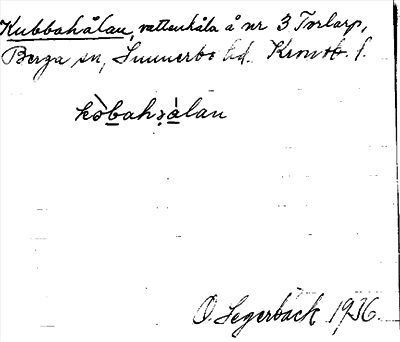 Kubbahålau, vattenhåla å nr 3 Torlarp,
Berga sn, Sunnerbo hd. Kronob. l.
kòbahàlau
O. Segerbäck 1936.